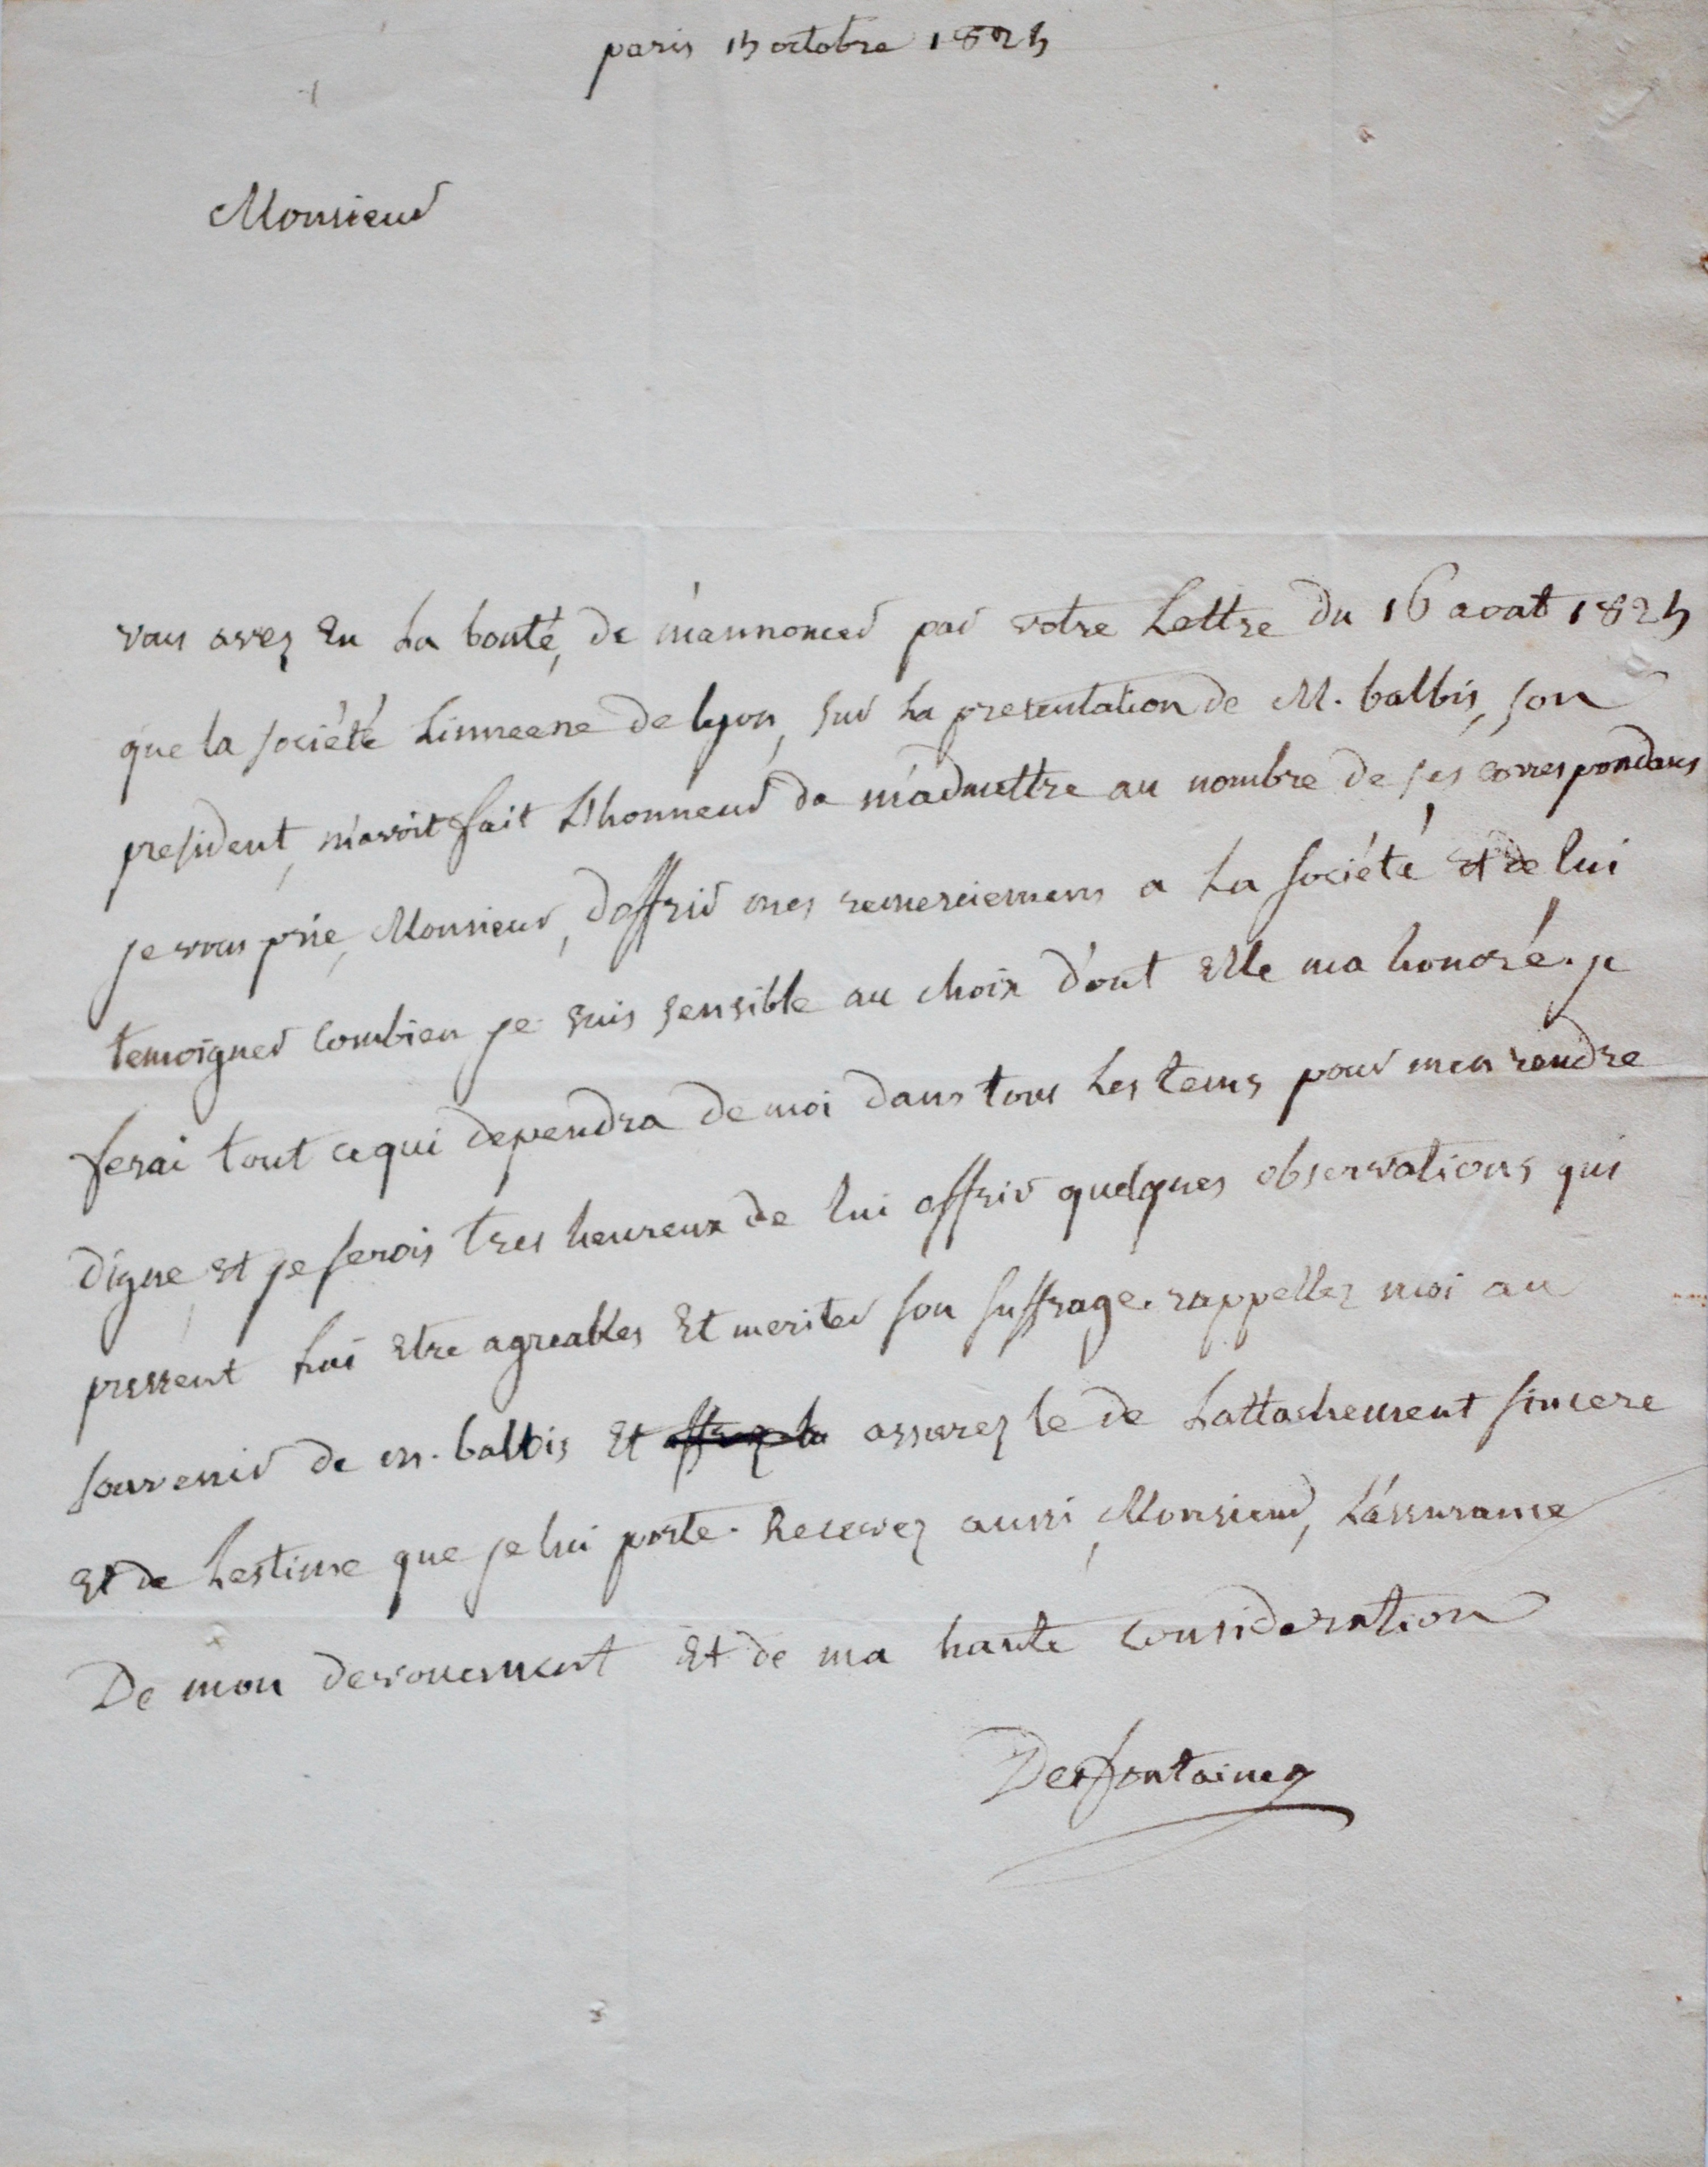 paris 15 octobre 1825
Monsieur
vous avez Eu La bonté, de m'annoncer par votre Lettre du 16 aoat 1825
que la société Linneene de lyon, sur La presentation de M. balbis, son
president, m'avoit fait L'honneur de m'admettre au nombre de ses correspondans
je vous prie, Monsieur, d'offrir mes remerciemens a La société et de lui
temoigner combien je suis sensible au choix d'ont Elle ma honoré. je
ferai tout ce qui dependra de moi dans tous Les tems pour men rendre
digne, et je serois tres heureux de lui offrir quelques observations qui
pussent Lui Etre agreables Et meriter son suffrage. rappellez moi au
souvenir de m. balbis Et assurez le de Lattachement sincere
Et de Lestime que je lui porte. Recevez aussi, Monsieur, L'assurance
De mon devouement Et de ma haute consideration
Desfontaines